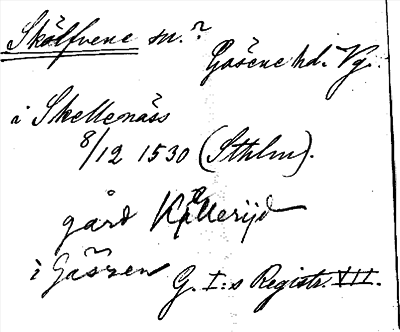 Skölfvene sn.?
Gäsene hd. Vg.
i Skellenäss
8/12 1530 (Sthlm).
gård Källerijd
i Gässzen G. I:s Registr. VII.